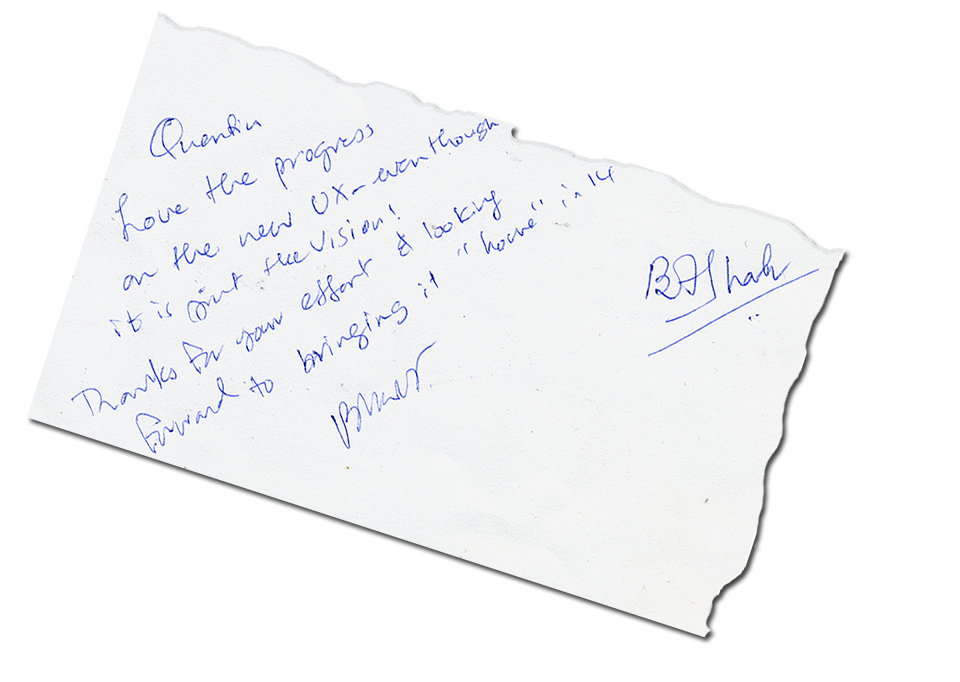 Quentin
Love the progress
on the new UX - even though
it is just the vision!
Thanks for your effort & looking
forward to bringing it "home" in 14